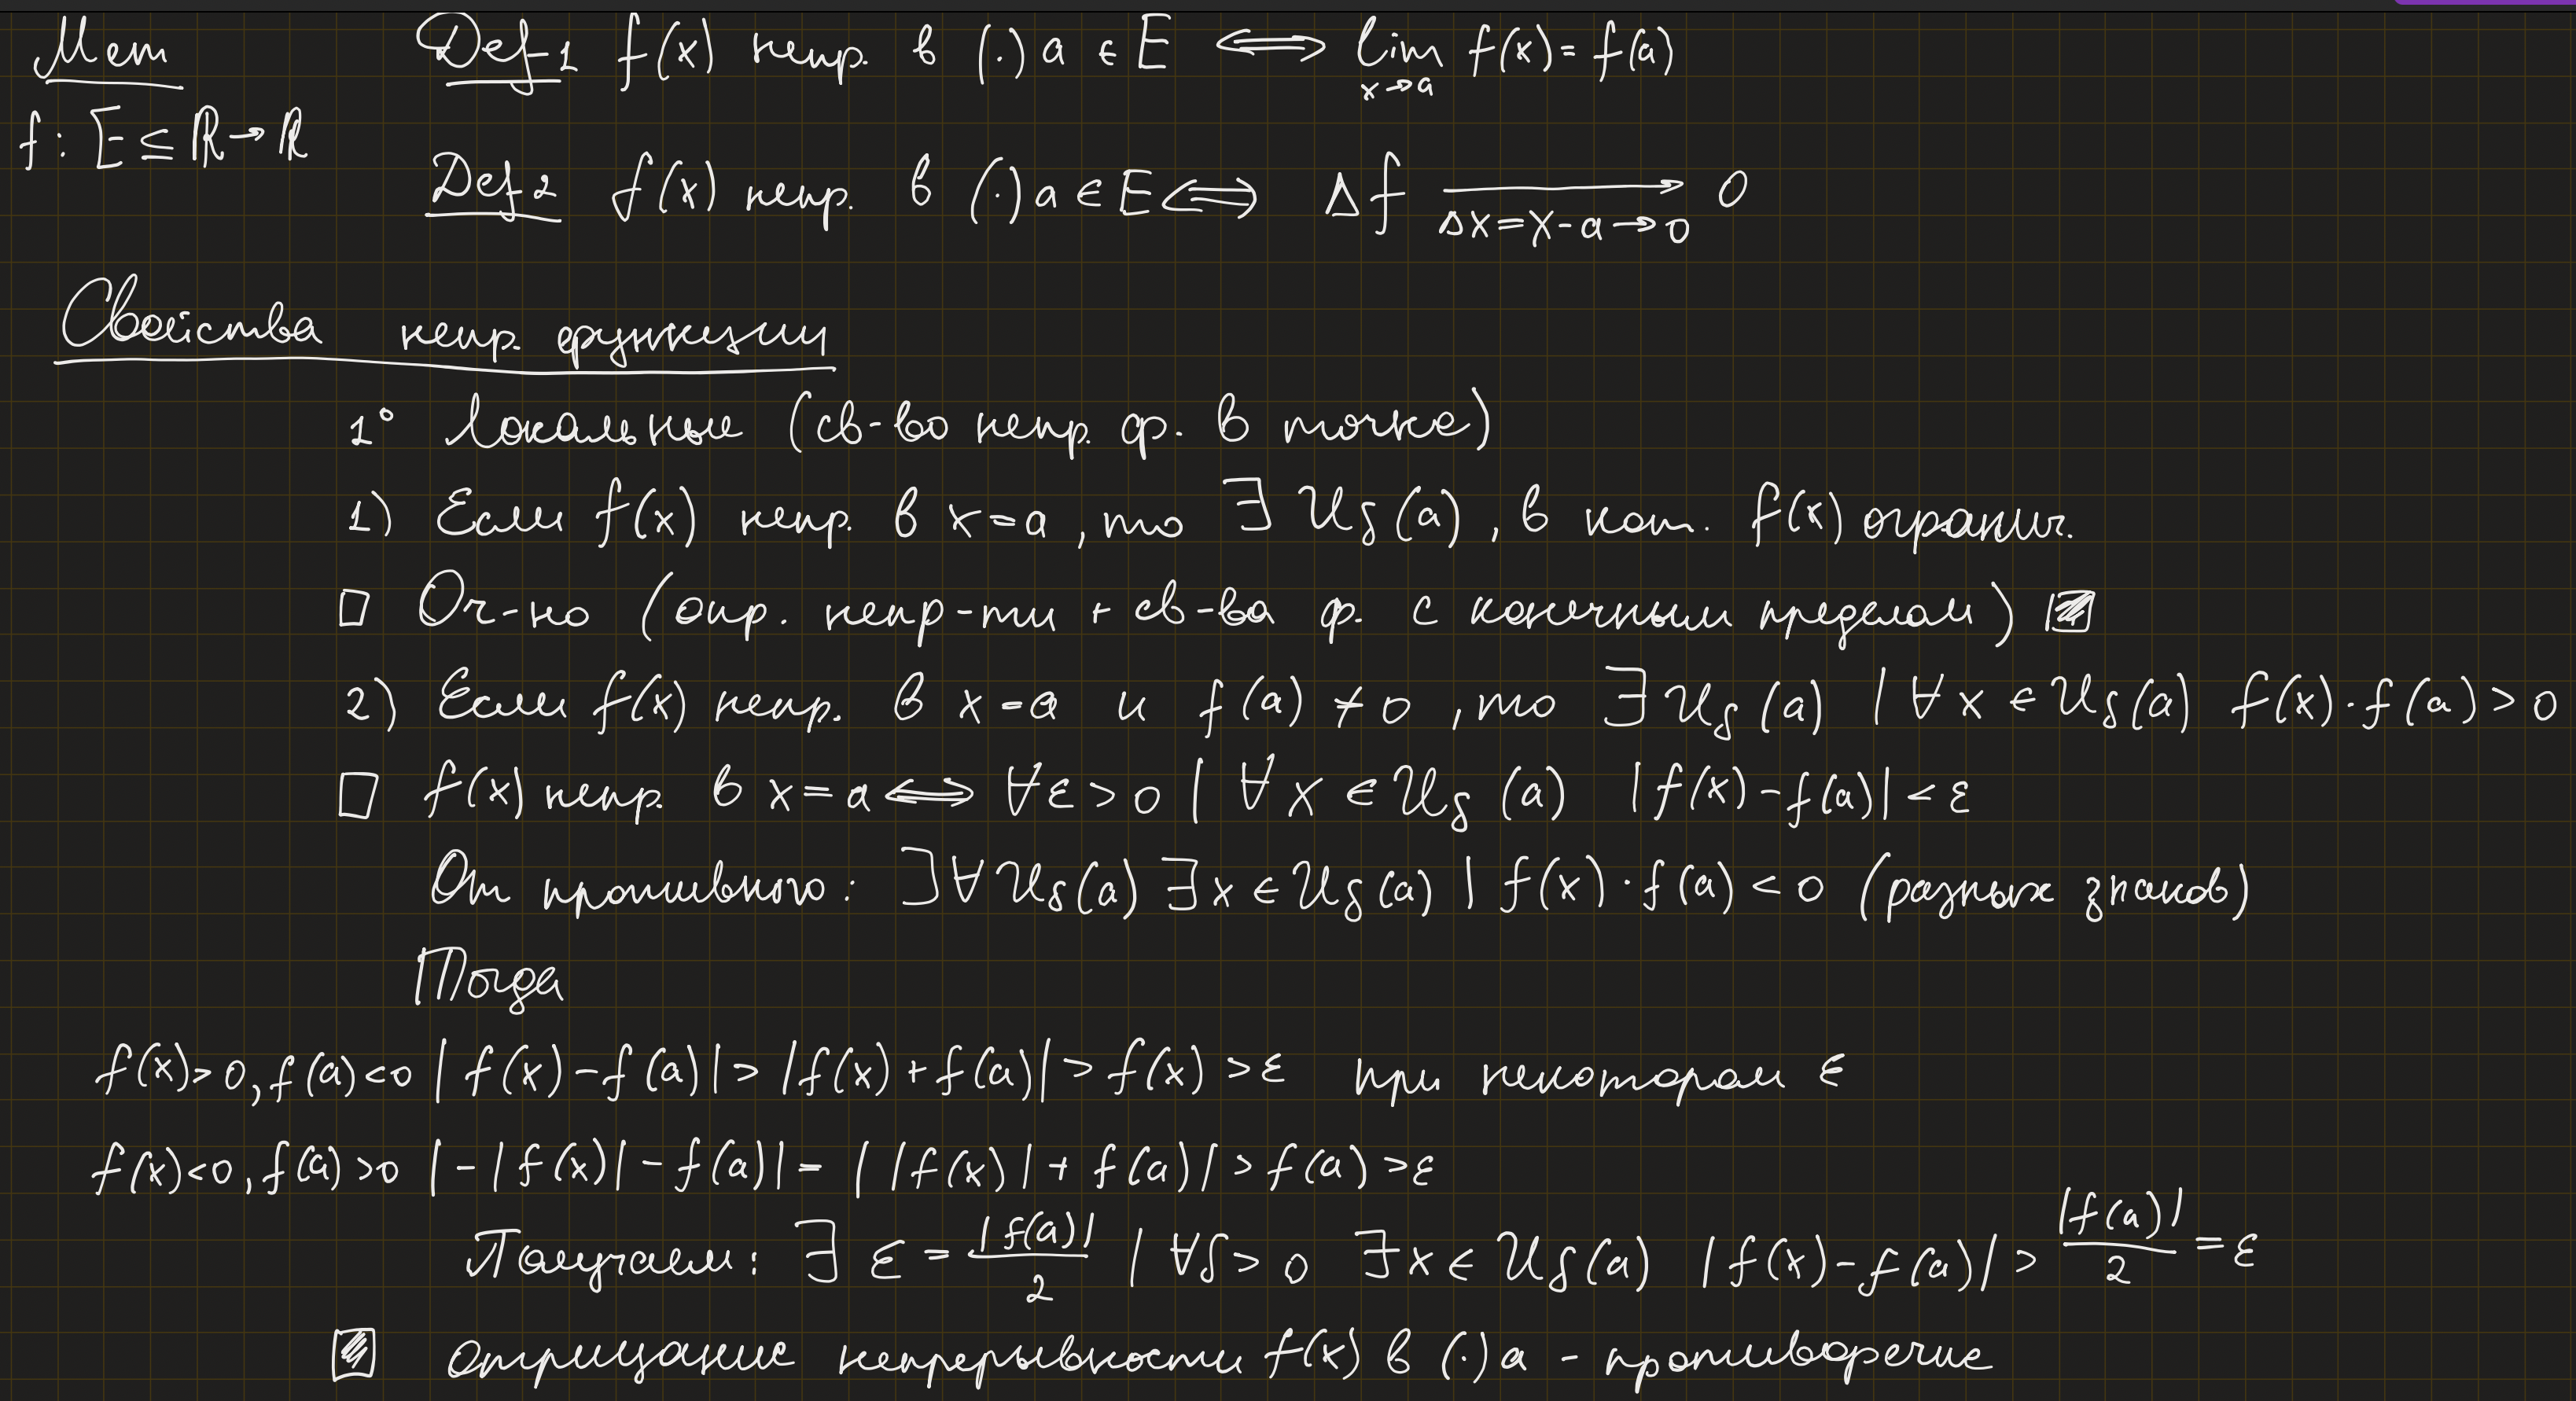 Mem Def 1 f(x) непр. в (·) a ∈ E ⟺ lim f(x) = f(a)
x→a
f: E ⊆ ℝ → ℝ
Def 2 f(x) непр. в (·) a ∈ E ⟺ Δf → 0
Δx = x - a → 0
Свойства непр. функции
1° Локальные (св-во непр. ф. в точке)
1) Если f(x) непр. в x = a, то ∃ U_δ(a), в кот. f(x) огранич.
□ Оч-но (опр. непр-ти + св-ва ф. с конечным пределом) ▨
2) Если f(x) непр. в x = a и f(a) ≠ 0, то ∃ U_δ(a) | ∀ x ∈ U_δ(a) f(x)·f(a) > 0
□ f(x) непр. в x = a ⟺ ∀ε > 0 | ∀ x ∈ U_δ(a) |f(x) - f(a)| < ε
От противного: ] ∀ U_δ(a) ∃ x ∈ U_δ(a) | f(x)·f(a) < 0 (разных знаков)
Тогда
f(x) > 0, f(a) < 0 |f(x) - f(a)| > |f(x) + f(a)| > f(x) > ε при некотором ε
f(x) < 0, f(a) > 0 |-|f(x)| - f(a)| = ||f(x)| + f(a)| > f(a) > ε
Получаем: ∃ ε = |f(a)|/2 | ∀δ > 0 ∃ x ∈ U_δ(a) |f(x) - f(a)| > |f(a)|/2 = ε
▨ отрицание непрерывности f(x) в (·) a - противоречие